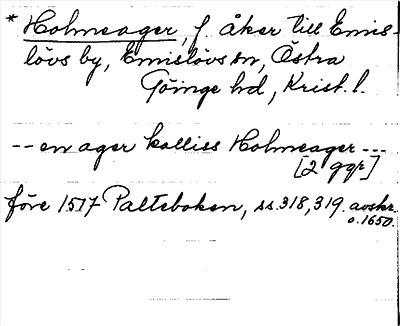 * Holmeager, f. åker till Emis-
lövs by, Emislövs sn, Östra
Göinge hd, Krist. l.
-- en ager kalliss Holmeager ---
[2 ggr]
före 1577 Palteboken, ss. 318, 319. avskr.
o. 1650.